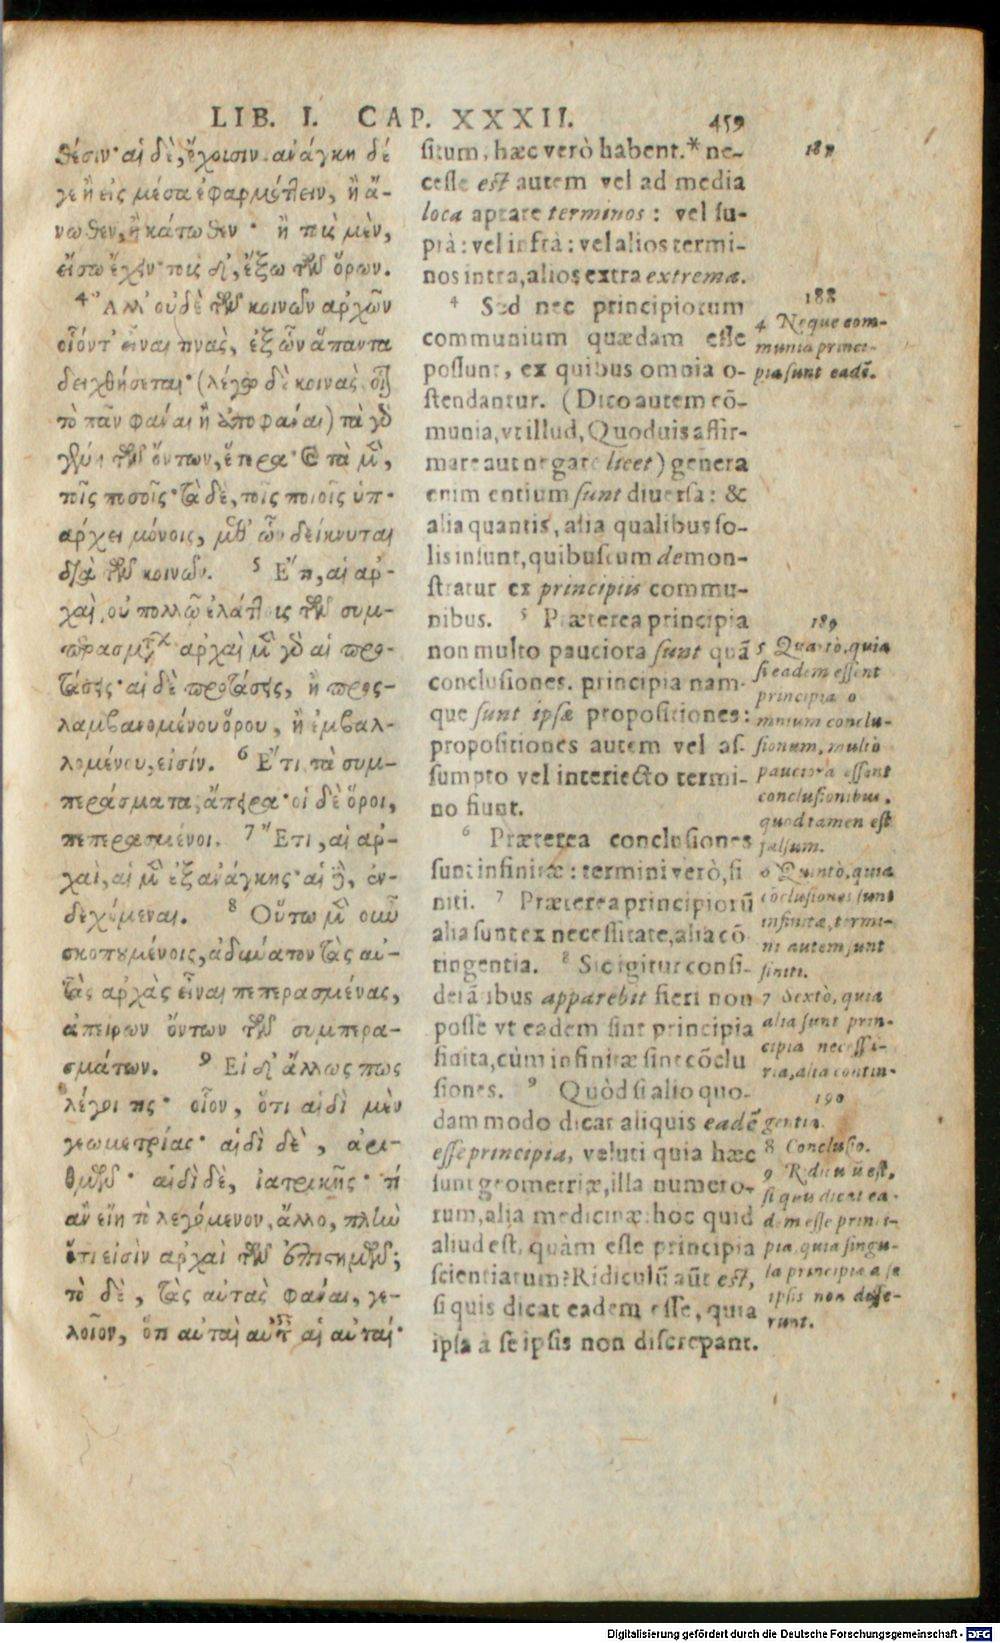 LIB. I. CAP. XXXII. 459
θέσιν· αἱ δὲ, ἔχουσιν. ἀνάγκη δέ
γε ἢ εἰς μέσα ἐφαρμόττειν, ἢ ἄ-
νωθεν, ἢ κάτωθεν· ἢ τοὺς μὲν,
εἴσω ἔχειν· τοὺς δ', ἔξω τῶν ὅρων.
4 Ἀλλ' οὐδὲ τῶν κοινῶν ἀρχῶν
οἷόντ' εἶναι τινὰς, ἐξ ὧν ἅπαντα
δειχθήσεται· (λέγω δὲ κοινὰς, οἷον
τὸ πᾶν φάναι ἢ ἀποφάναι) τὰ γὰρ
γένη τῶν ὄντων, ἕτερα· καὶ τὰ μὲν,
τοῖς ποσοῖς· τὰ δὲ, τοῖς ποιοῖς ὑπ-
άρχει μόνοις, μεθ' ὧν δείκνυται
διὰ τῶν κοινῶν. 5 Ἔτι, αἱ ἀρ-
χαὶ, οὐ πολλῷ ἐλάττους τῶν συμ-
περασμάτων· ἀρχαὶ μὲν γὰρ αἱ προ-
τάσεις· αἱ δὲ προτάσεις, ἢ προς-
λαμβανομένου ὅρου, ἢ ἐμβαλ-
λομένου, εἰσίν. 6 Ἔτι τὰ συμ-
περάσματα, ἄπειρα· οἱ δὲ ὅροι,
πεπερασμένοι. 7 Ἔτι, αἱ ἀρ-
χαὶ, αἱ μὲν ἐξ ἀνάγκης· αἱ δὲ, ἐν-
δεχόμεναι. 8 Οὕτω μὲν οὖν
σκοπουμένοις, ἀδύνατον τὰς αὐ-
τὰς ἀρχὰς εἶναι πεπερασμένας,
ἀπείρων ὄντων τῶν συμπερα-
σμάτων. 9 Εἰ δ' ἄλλως πως
λέγοι τις· οἷον, ὅτι αἱδὶ μὲν
γεωμετρίας· αἱδὶ δὲ, ἀρι-
θμῶν· αἱδὶ δὲ, ἰατρικῆς· τί
ἂν εἴη τὸ λεγόμενον, ἄλλο, πλὴν
ὅτι εἰσὶν ἀρχαὶ τῶν ἐπιστημῶν;
τὸ δὲ, τὰς αὐτὰς φάναι, γε-
λοῖον, ὅτι αὐταὶ αὑταῖς αἱ αὐταί·
situm, hæc verò habent.* ne-
cesse est autem vel ad media
loca aptare terminos: vel su-
prà: vel infrà: vel alios termi-
nos intra, alios extra extrema.
4 Sed nec principiorum
communium quædam esse
possunt, ex quibus omnia o-
stendantur. (Dico autem cō-
munia, vt illud, Quoduis affir-
mare aut negare licet) genera
enim entium sunt diuersa: &
alia quantis, alia qualibus so-
lis insunt, quibuscum demon-
stratur ex principiis commu-
nibus. 5 Præterea principia
non multo pauciora sunt quā
conclusiones. principia nam-
que sunt ipsæ propositiones:
propositiones autem vel as-
sumpto vel interiecto termi-
no fiunt.
6 Præterea conclusiones
sunt infinitæ: termini verò, fi
niti. 7 Præterea principiorū
alia sunt ex necessitate, alia cō
tingentia. 8 Sic igitur consi-
derātibus apparebit fieri non
posse vt eadem sint principia
finita, cùm infinitæ sint cōclu
siones. 9 Quòd si alio quo-
dam modo dicat aliquis eadē
esse principia, veluti quia hæc
sunt geometriæ, illa numero-
rum, alia medicinæ: hoc quid
aliud est, quàm esse principia
scientiarum? Ridiculū aūt est,
si quis dicat eadem esse, quia
ipsa à se ipsis non discrepant.
187
188
4 Neque com-
munia princi-
pia sunt eadē.
189
5 Quartò, quia
si eadem essent
principia o
mnium conclu-
sionum, multò
pauciora essent
conclusionibus,
quod tamen est
falsum.
6 Quintò, quia
cōclusiones sunt
infinitæ, termi-
ni autem sunt
finiti.
7 Sextò, quia
alia sunt prin-
cipia necessa-
ria, alia contin-
190
gentia.
8 Conclusio.
9 Ridiculū est,
si quis dicat ea-
dem esse princi-
pia, quia singu-
la principia a se
ipsis non diffe-
runt.
Digitalisierung gefördert durch die Deutsche Forschungsgemeinschaft - DFG